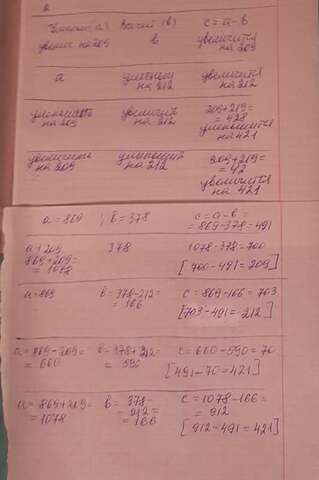 Уменьш.(а) Вычит. (в) c = a - b
увелич на 209 в увеличится на 209
a уменьшит на 212 увеличится на 212
уменьшить на 209 увеличить на 212 209+219= = 428 уменьшится на 421
увеличить на 209 уменьшить на 212 209+219= = 42 увеличится на 421
a = 869 ; b = 378 c = a - b = = 869-378 = 491
a + 209 378 1078-378 = 700
869+209= = 1078 [700-491 = 209]
a = 869 b = 378-212= = 166 c = 869-166 = 703
[703-491 = 212]
a = 869-209= = 660 b = 378+212= = 590 c = 660-590 = 70
[491-70 = 421]
a = 869+219= = 1078 b = 378- - 212 = = 166 c = 1078-166= = 912
[912-491 = 421]